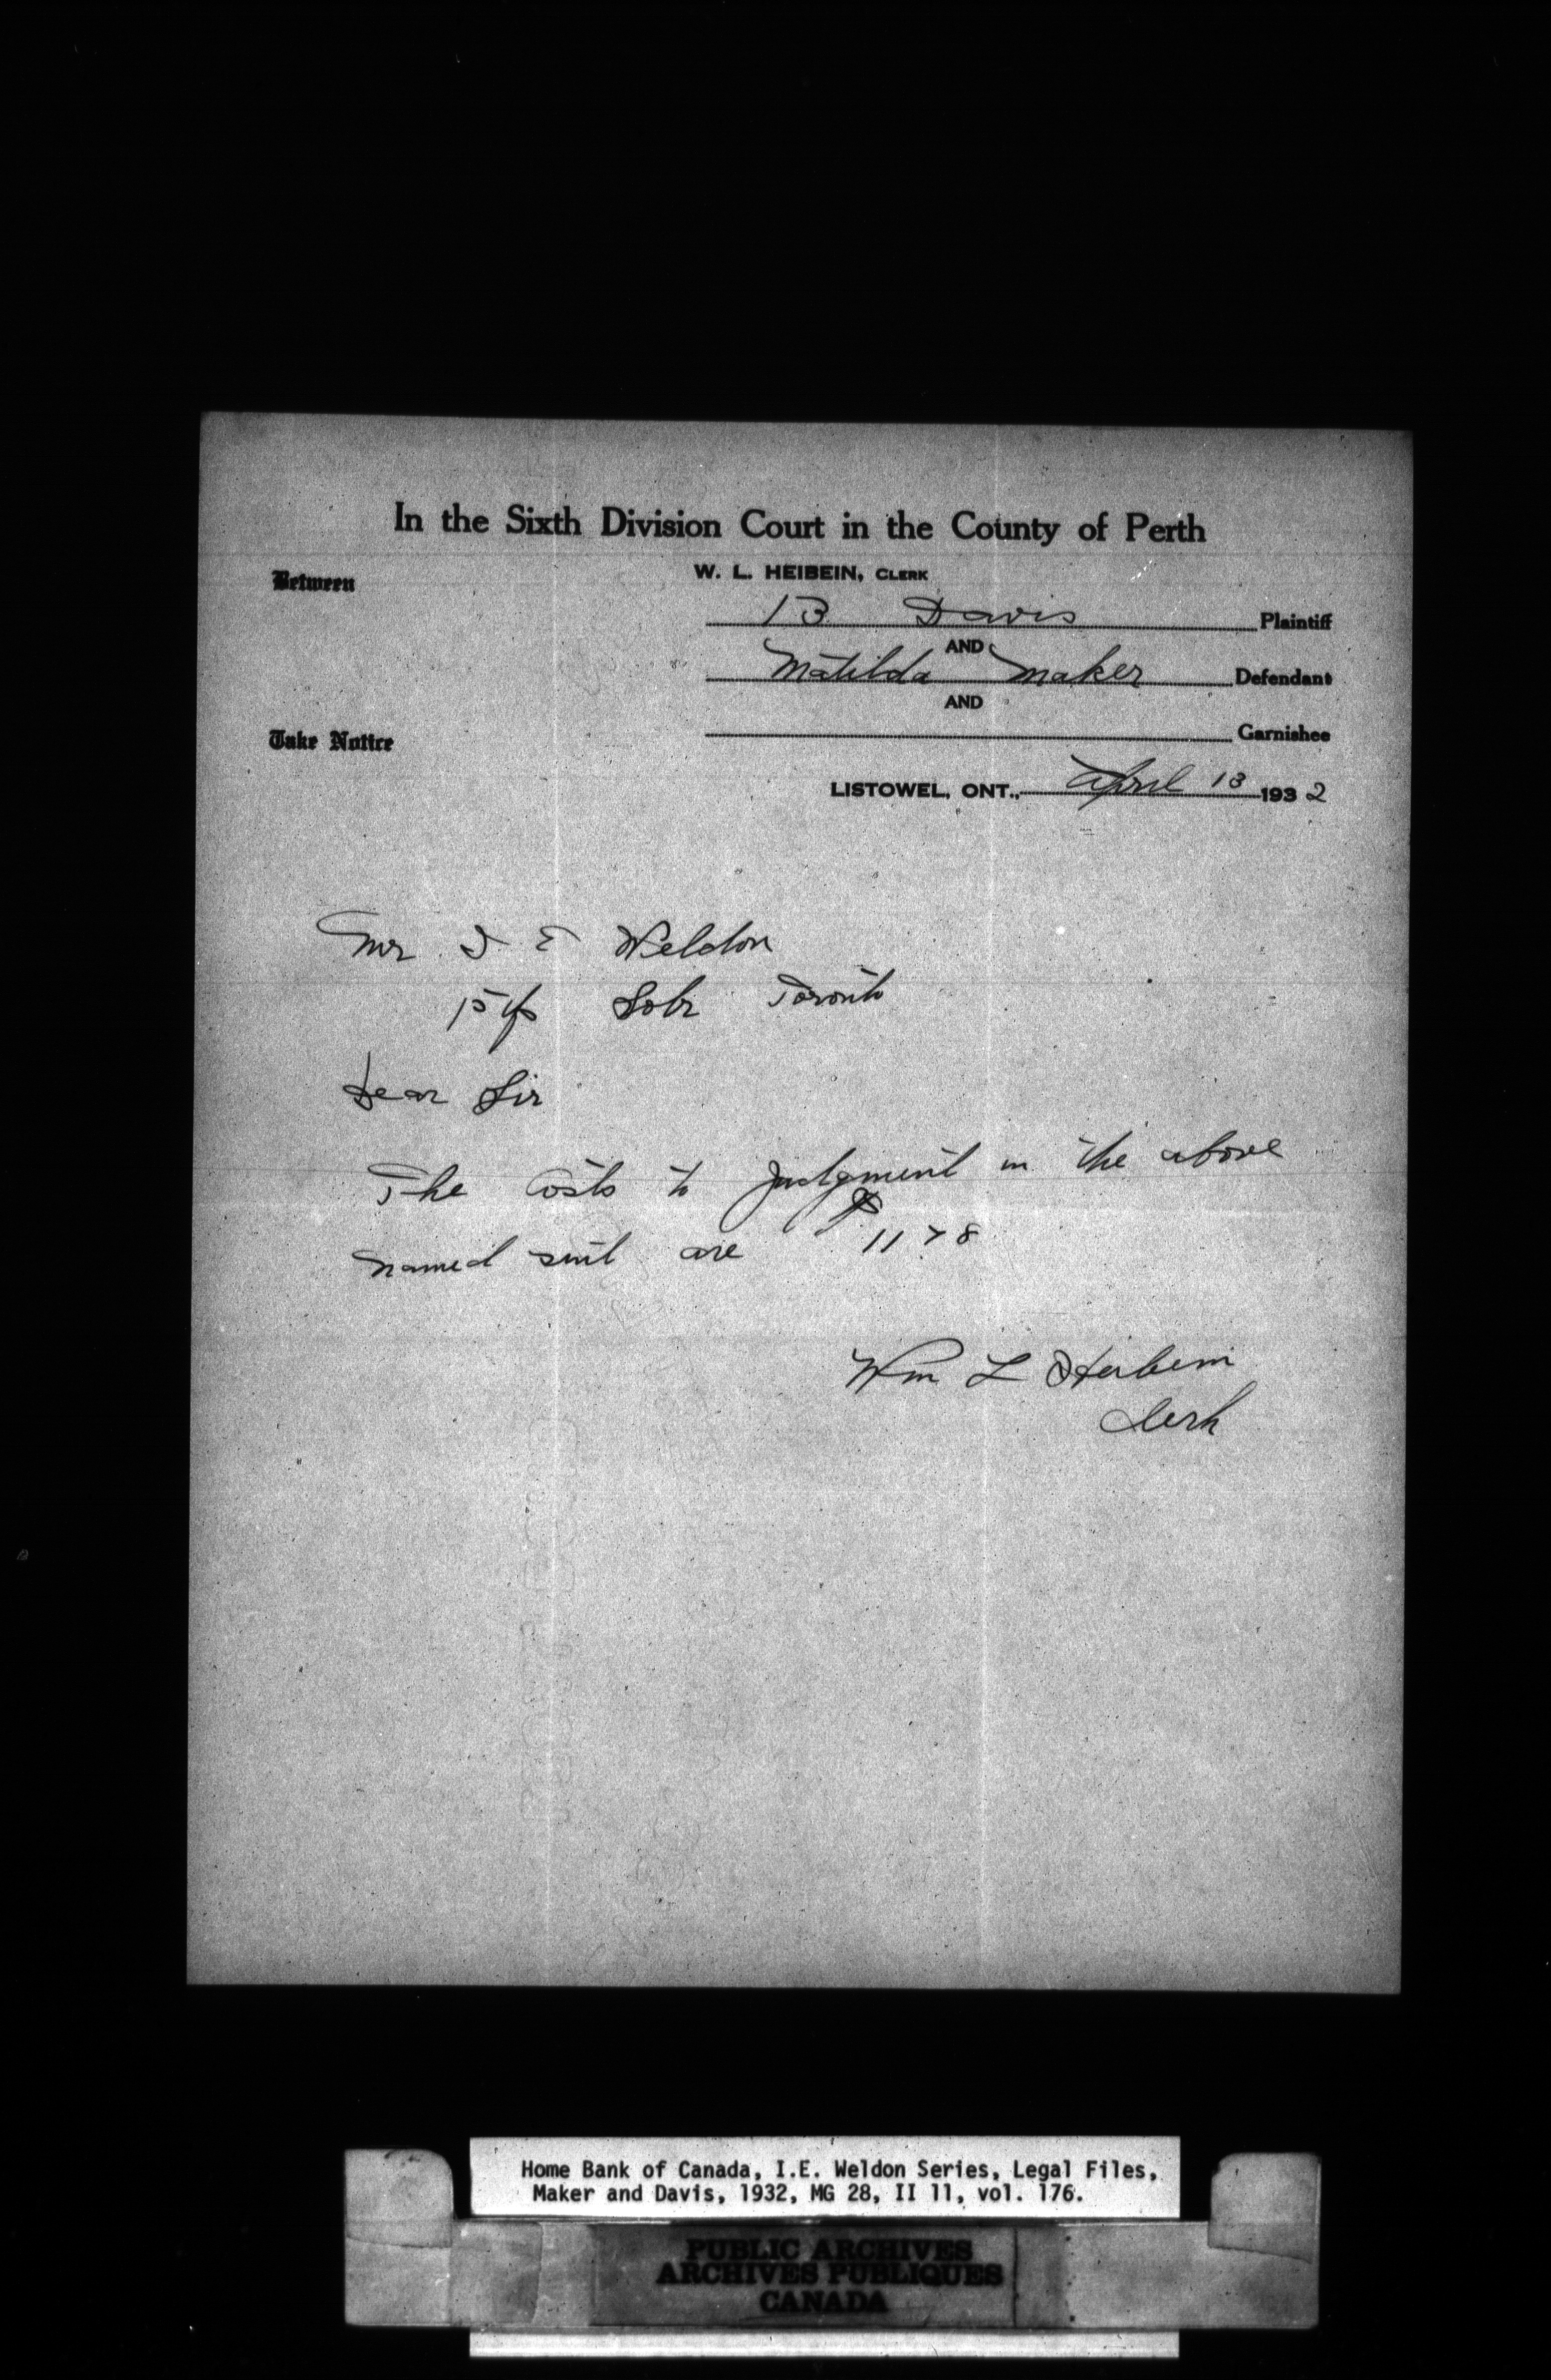 In the Sixth Division Court in the County of Perth
W. L. HEIBEIN, CLERK
Between
B Davis Plaintiff
AND
Matilda Maker Defendant
AND
Garnishee
Take Notice
LISTOWEL, ONT., April 13 1932
Mr I E Weldon
Solr Toronto
Dear Sir
The Costs to Judgment in the above
named suit are $11 78
Wm L Heibein
Clerk
Home Bank of Canada, I.E. Weldon Series, Legal Files,
Maker and Davis, 1932, MG 28, II 11, vol. 176.
PUBLIC ARCHIVES
ARCHIVES PUBLIQUES
CANADA